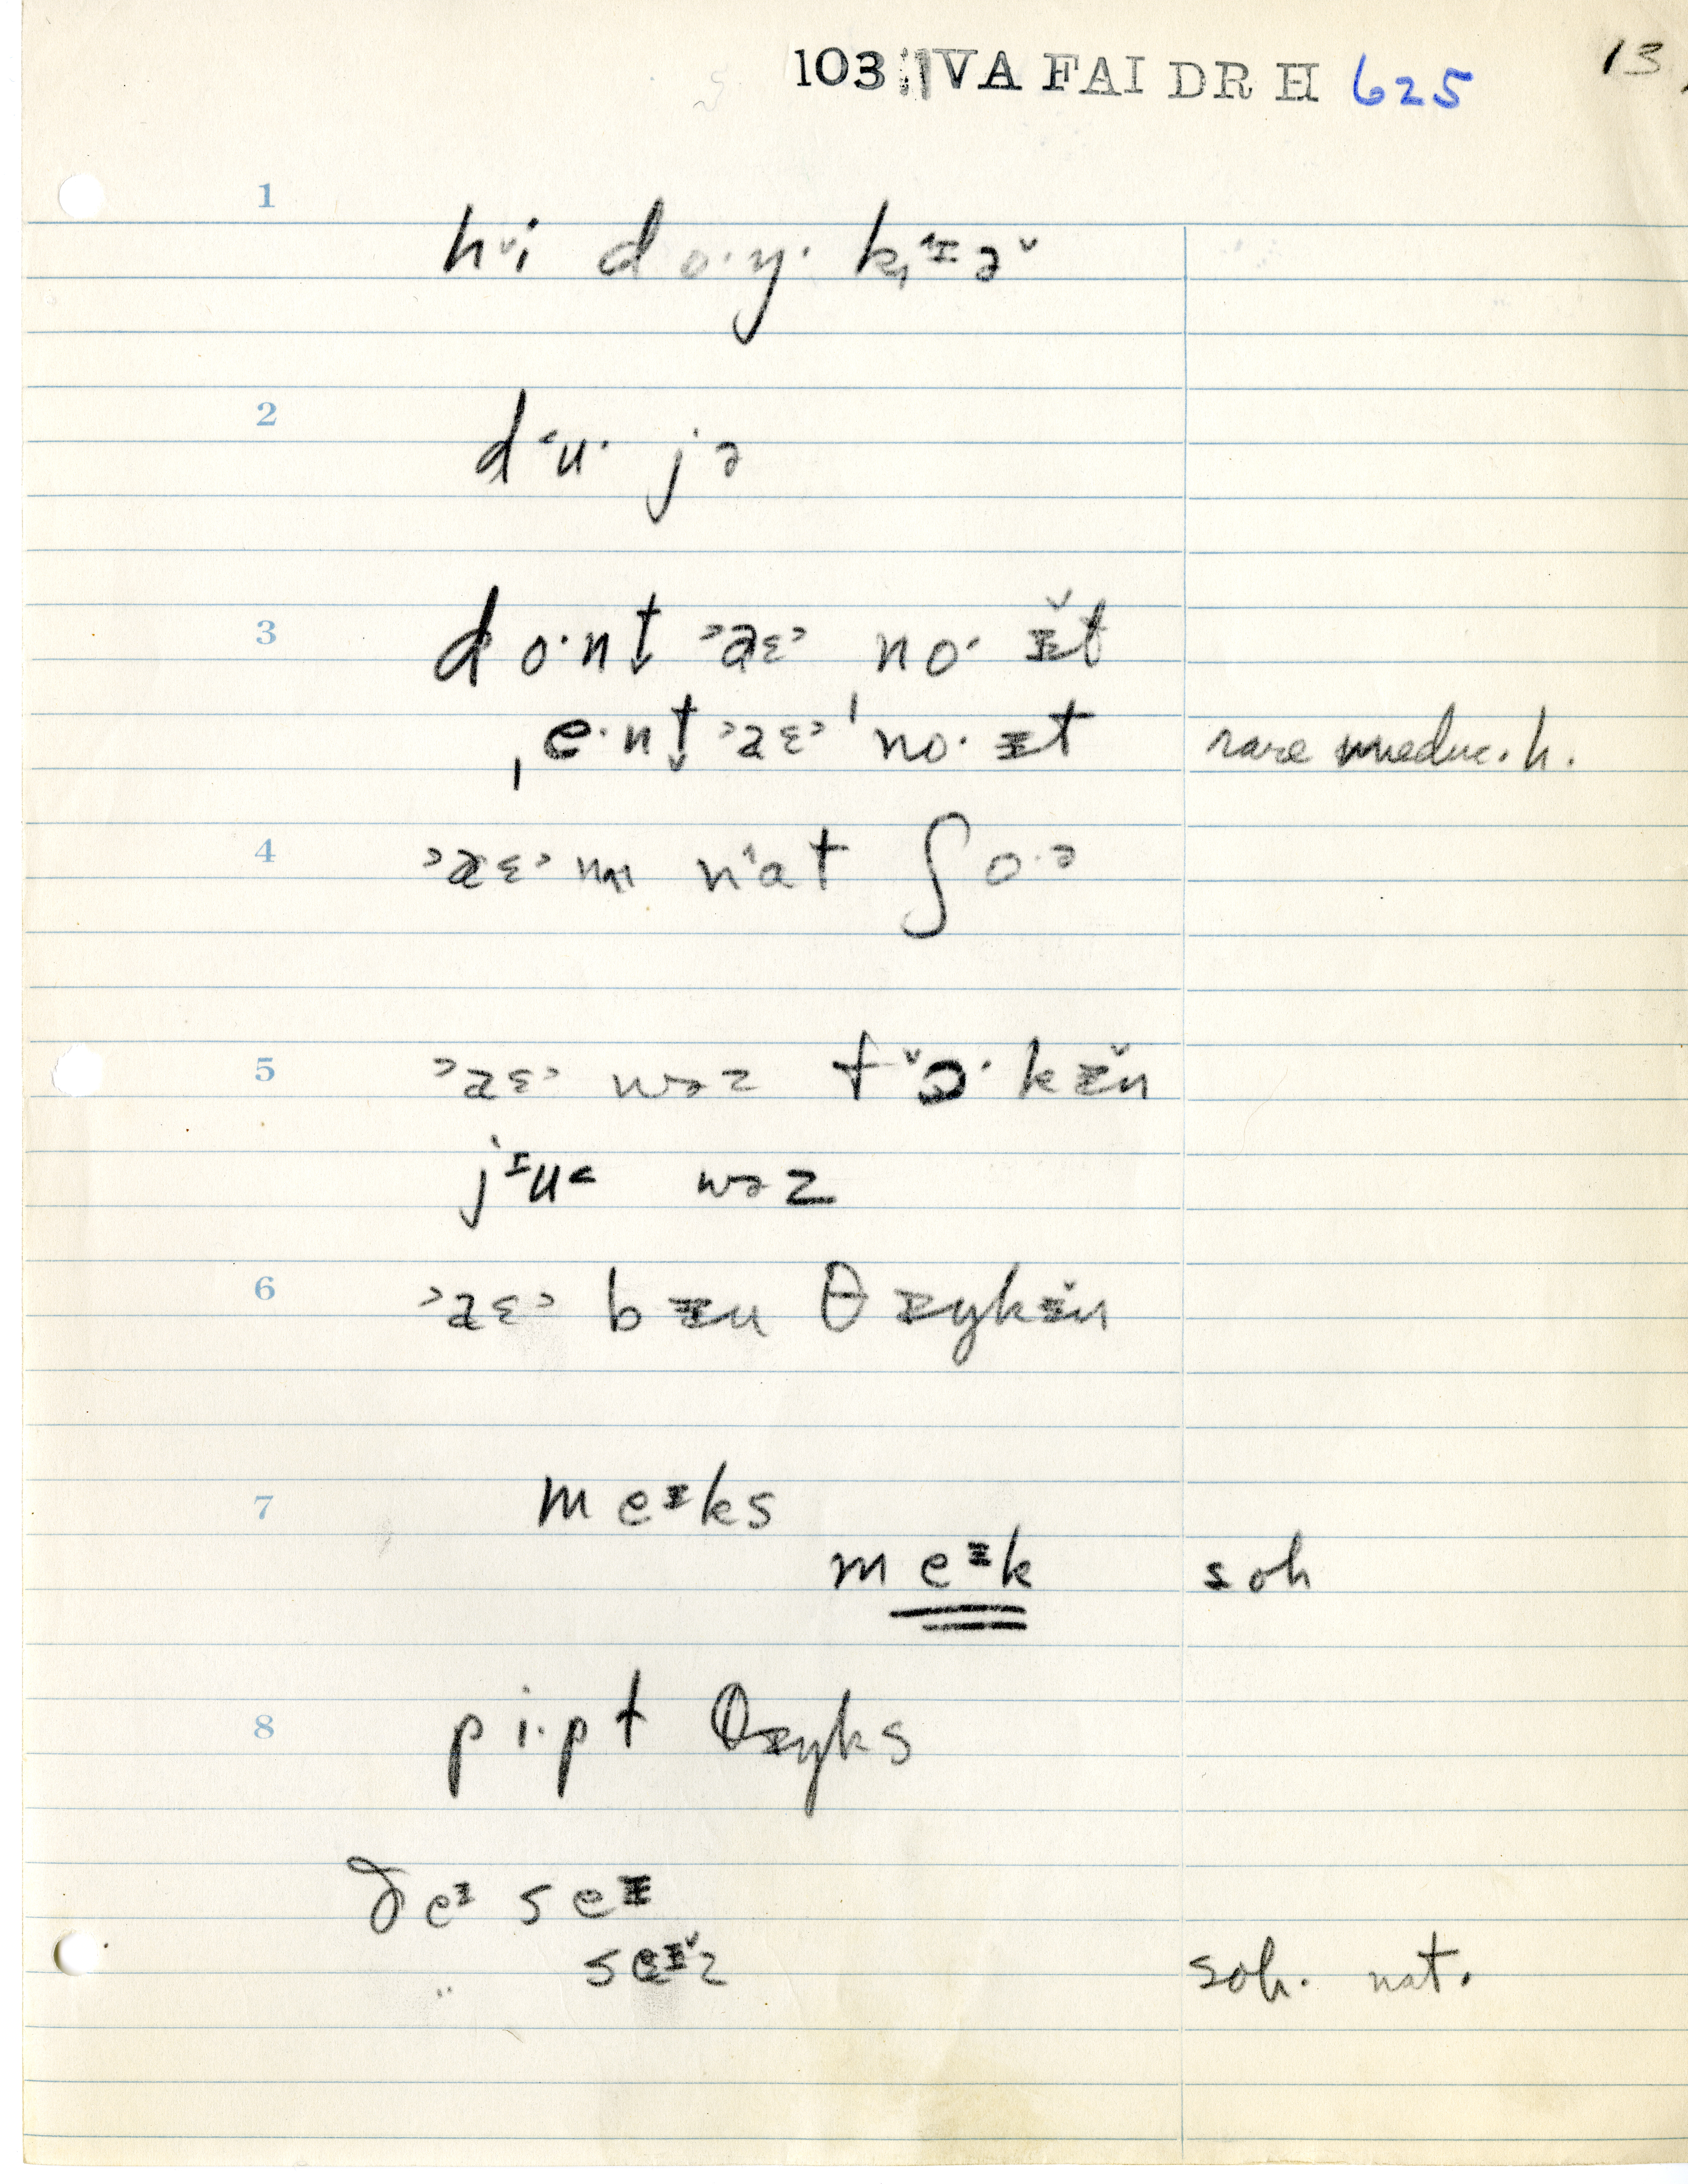 103 IVA FAI DR H 625 13
1
hᵛi do·y· kᶦᵊə
2
d˂u· jə
3
do·nt ˃aɛ˃ no· ɪ̆t
ˌe·nt ˃aɛ˃ ˈno· ɪt rare uneduc. h.
4
˃aɛ˃ nat ʃo·ə
5
˃aɛ˃ wəz tᵛɔ·kɪ̆n
jᶦu˂ wəz
6
˃aɛ˃ bɪn θɪŋkɪ̆n
7
meᶦks
meᶦk soh
8
pi·pt θɪŋks
ðeᶦ seᶦ
" seᶦz soh. nat.